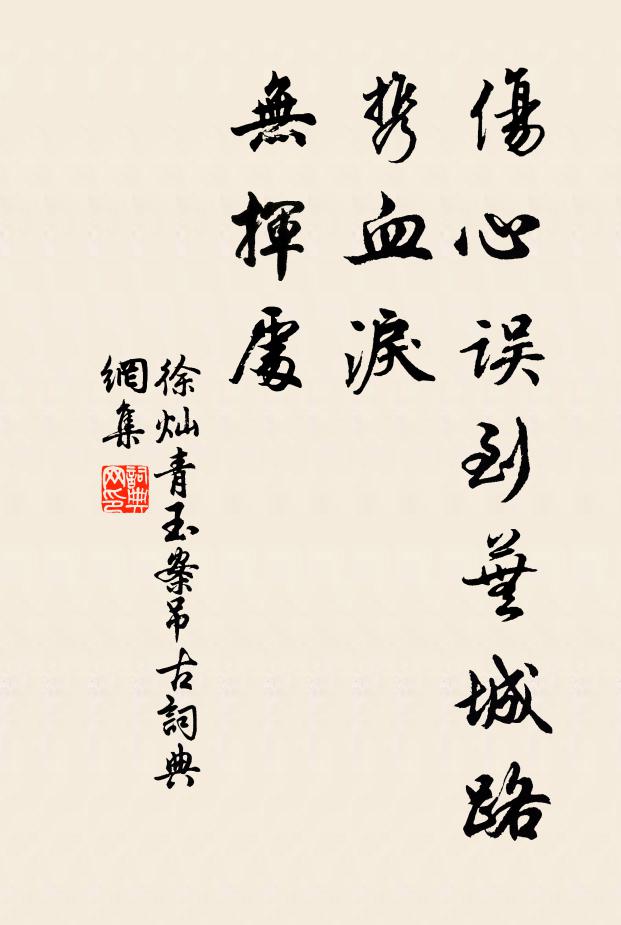 傷心误到蕪城路
携血淚
無揮處
徐灿青玉案吊古詞典
網集
詞典网印